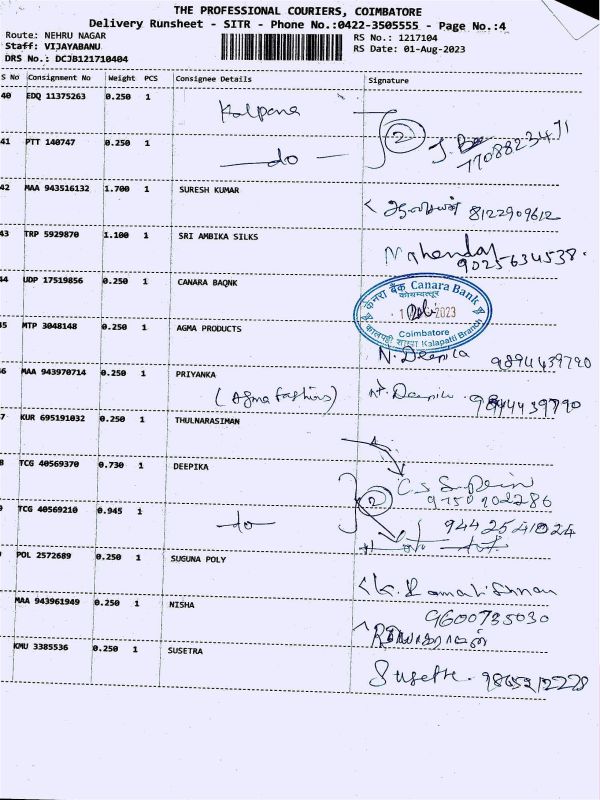 THE PROFESSIONAL COURIERS, COIMBATORE
Delivery Runsheet - SITR - Phone No.:0422-3505555 - Page No.:4
Route: NEHRU NAGAR RS No.: 1217104
Staff: VIJAYABANU RS Date: 01-Aug-2023
DRS No.: DCJB121710404
S No Consignment No Weight PCS Consignee Details Signature
40 EDQ 11375263 0.250 1 Kalpana
2
7708823471
41 PTT 140747 0.250 1 do
42 MAA 943516132 1.700 1 SURESH KUMAR
8122909612
43 TRP 5929870 1.100 1 SRI AMBIKA SILKS
Mahendar
9025634538.
44 UDP 17519856 0.250 1 CANARA BAQNK
केनरा बैंक Canara Bank
कोयम्बत्तूर
2023
Coimbatore
Kalapatti Branch
45 MTP 3048148 0.250 1 AGMA PRODUCTS
N. Deepila 9894439790
46 MAA 943970714 0.250 1 PRIYANKA
(Agma fashions) N. Deepila 9894439790
7 KUR 695191032 0.250 1 THULNARASIMAN
8 TCG 40569370 0.730 1 DEEPIKA
2
9750902286
9 TCG 40569210 0.945 1 do
9442541024
POL 2572689 0.250 1 SUGUNA POLY
MAA 943961949 0.250 1 NISHA
9600735030
KMU 3385536 0.250 1 SUSETRA